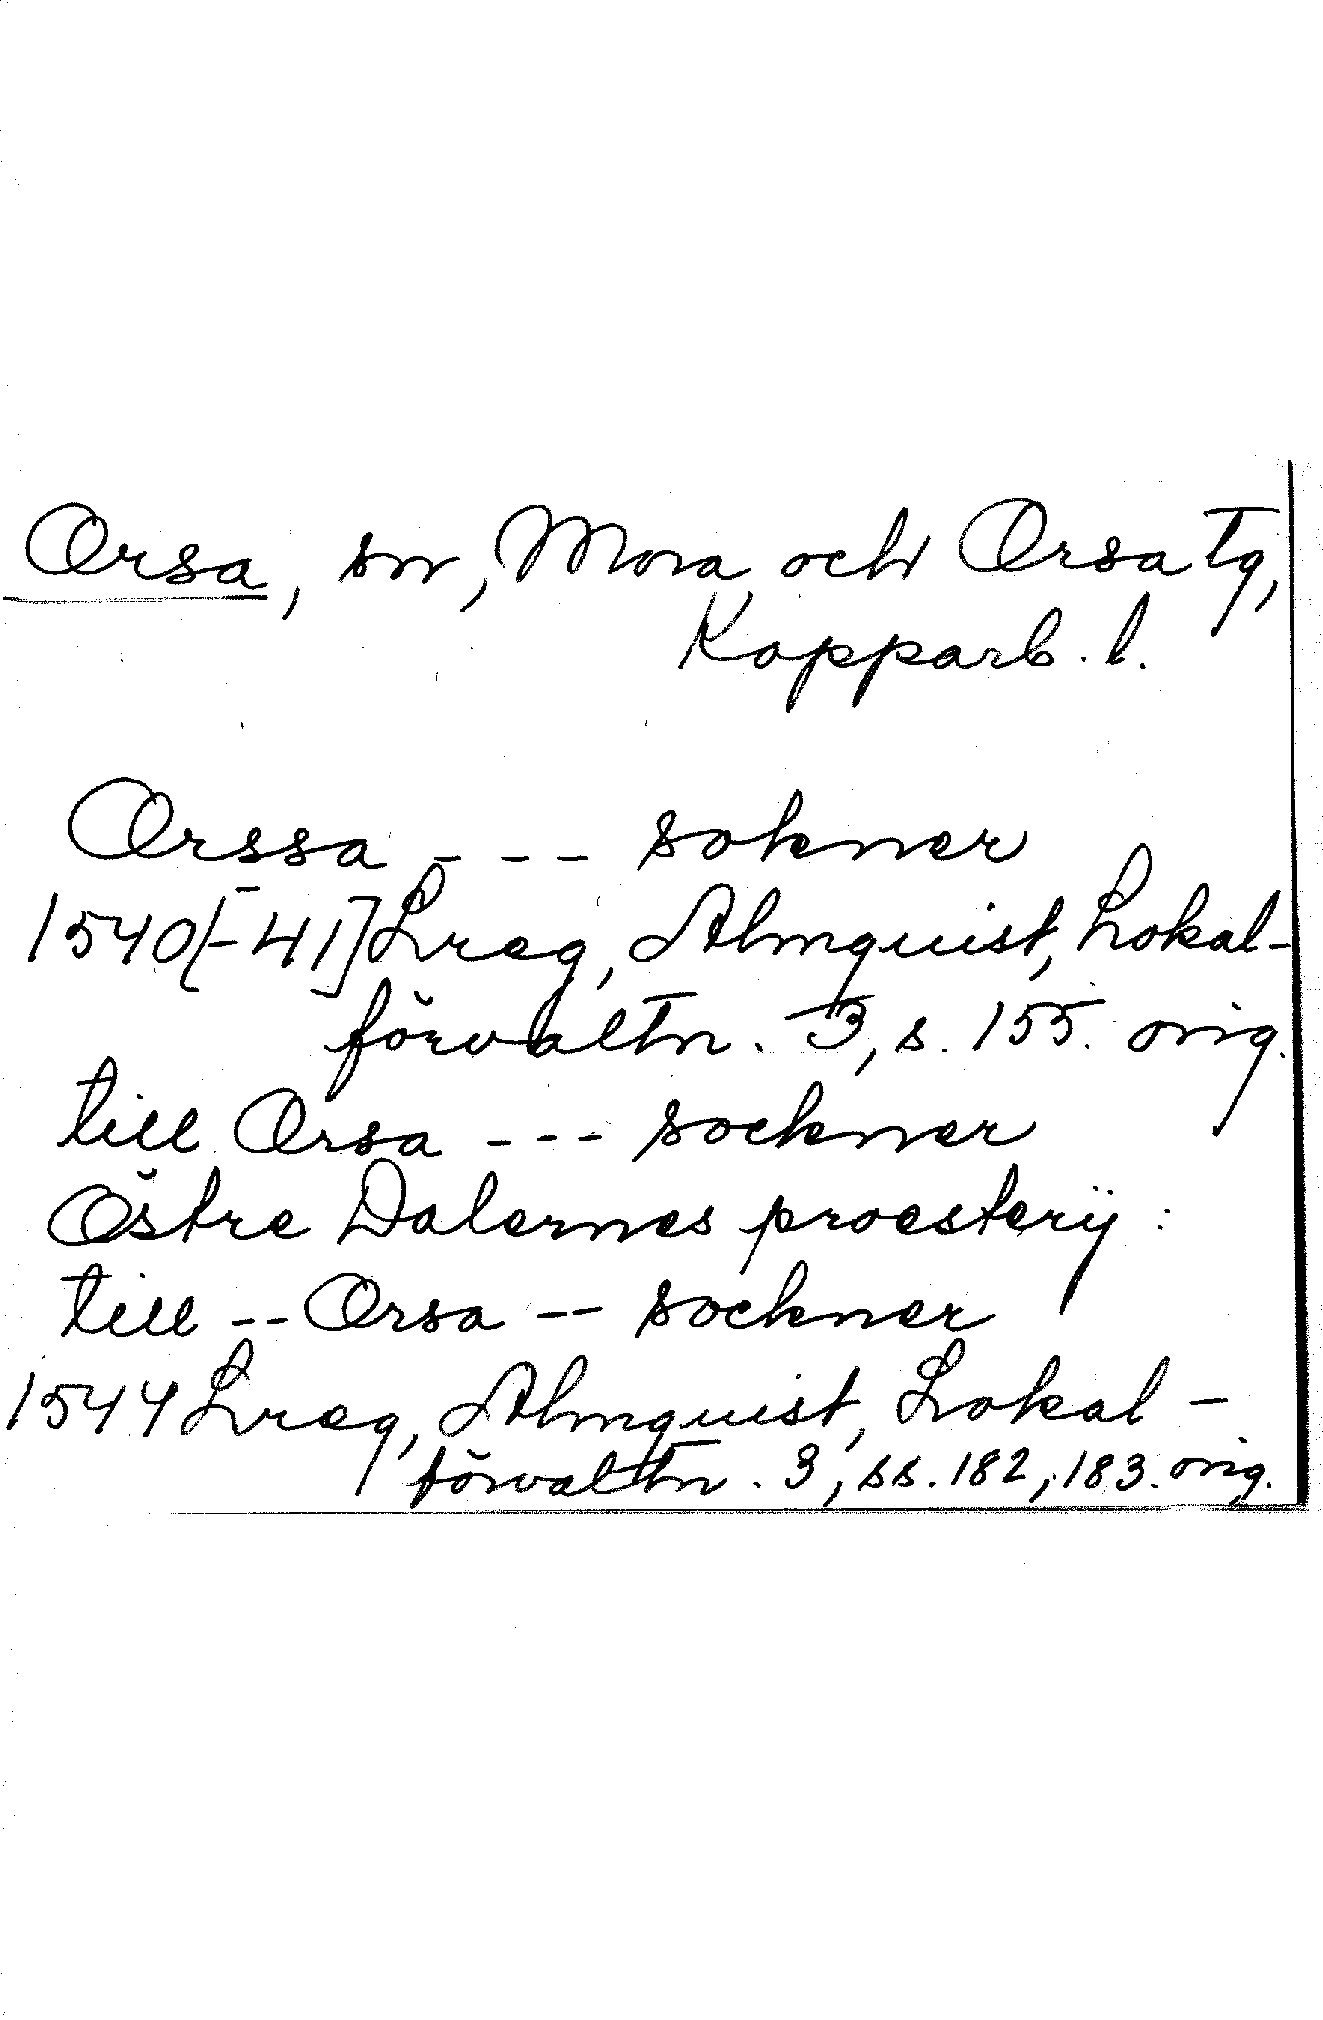 Orsa, sn, Mora och Orsa tg,
Kopparb. l.
Orssa --- sokner
1540[-41] Lreg, Almquist, Lokal-
förvaltn. 3, s. 155. orig.
till Orsa --- sockner
Östre Dalernes proesterij:
till -- Orsa -- sockner
1544 Lreg, Almquist, Lokal-
förvaltn. 3, ss. 182, 183. orig.